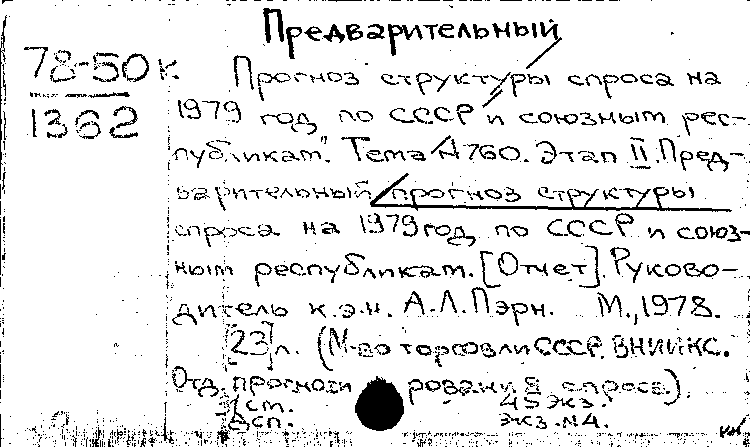 Предварительный
78-50 к.
1362
Прогноз структуры спроса на
1979 год по СССР и союзным рес-
публикам". Тема А760. Этап II. Пред-
варительный прогноз структуры
спроса на 1979 год по СССР и союз-
ным республикам. [Отчет]. Руково-
дитель к.э.н. А.Л.Пэрн. М., 1978.
[23]л. (М-во торговли СССР. ВНИИКС.
Отд. прогнозирования спроса).
1 ст.
45 экз.
Дсп.
экз. №4.